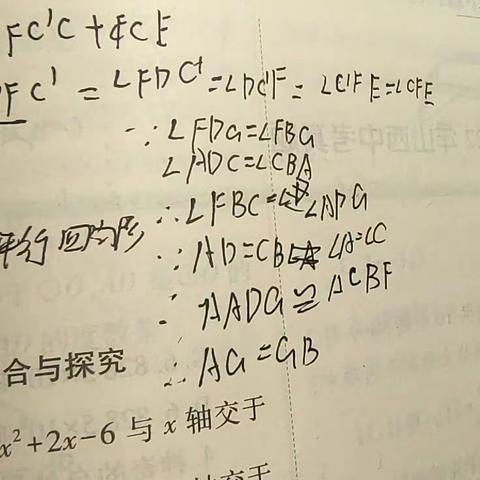 FC'C + FCE
FC' = ∠FDC' = ∠DC'F = ∠C'FE = ∠CFE
∵ ∠FDG=∠FBG
∠ADC=∠CBA
∴ ∠FBC=∠ADG
平行四边形
∵ AD=CB ∠A=∠C
∴ △ADG≌△CBF
∴ AG=GB
合与探究
x²+2x-6 与 x 轴交于
轴交于